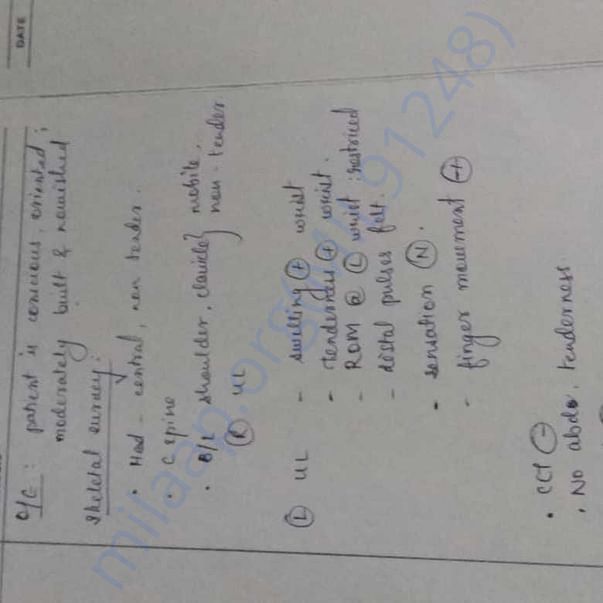 DATE
O/E : patient is conscious, oriented,
moderately built & nourished
Skeletal survey:
• Head - central, non tender.
• C spine
• B/L shoulder, clavicle } mobile,
non-tender
Ⓡ UL
Ⓛ UL - swelling ⊕ wrist
- tenderness ⊕ wrist.
- ROM @ Ⓛ wrist : restricted
- distal pulses felt.
• sensation Ⓝ.
- finger movement ⊕
• CCT ⊖
• No abdo. tenderness
milaap.org 91248)